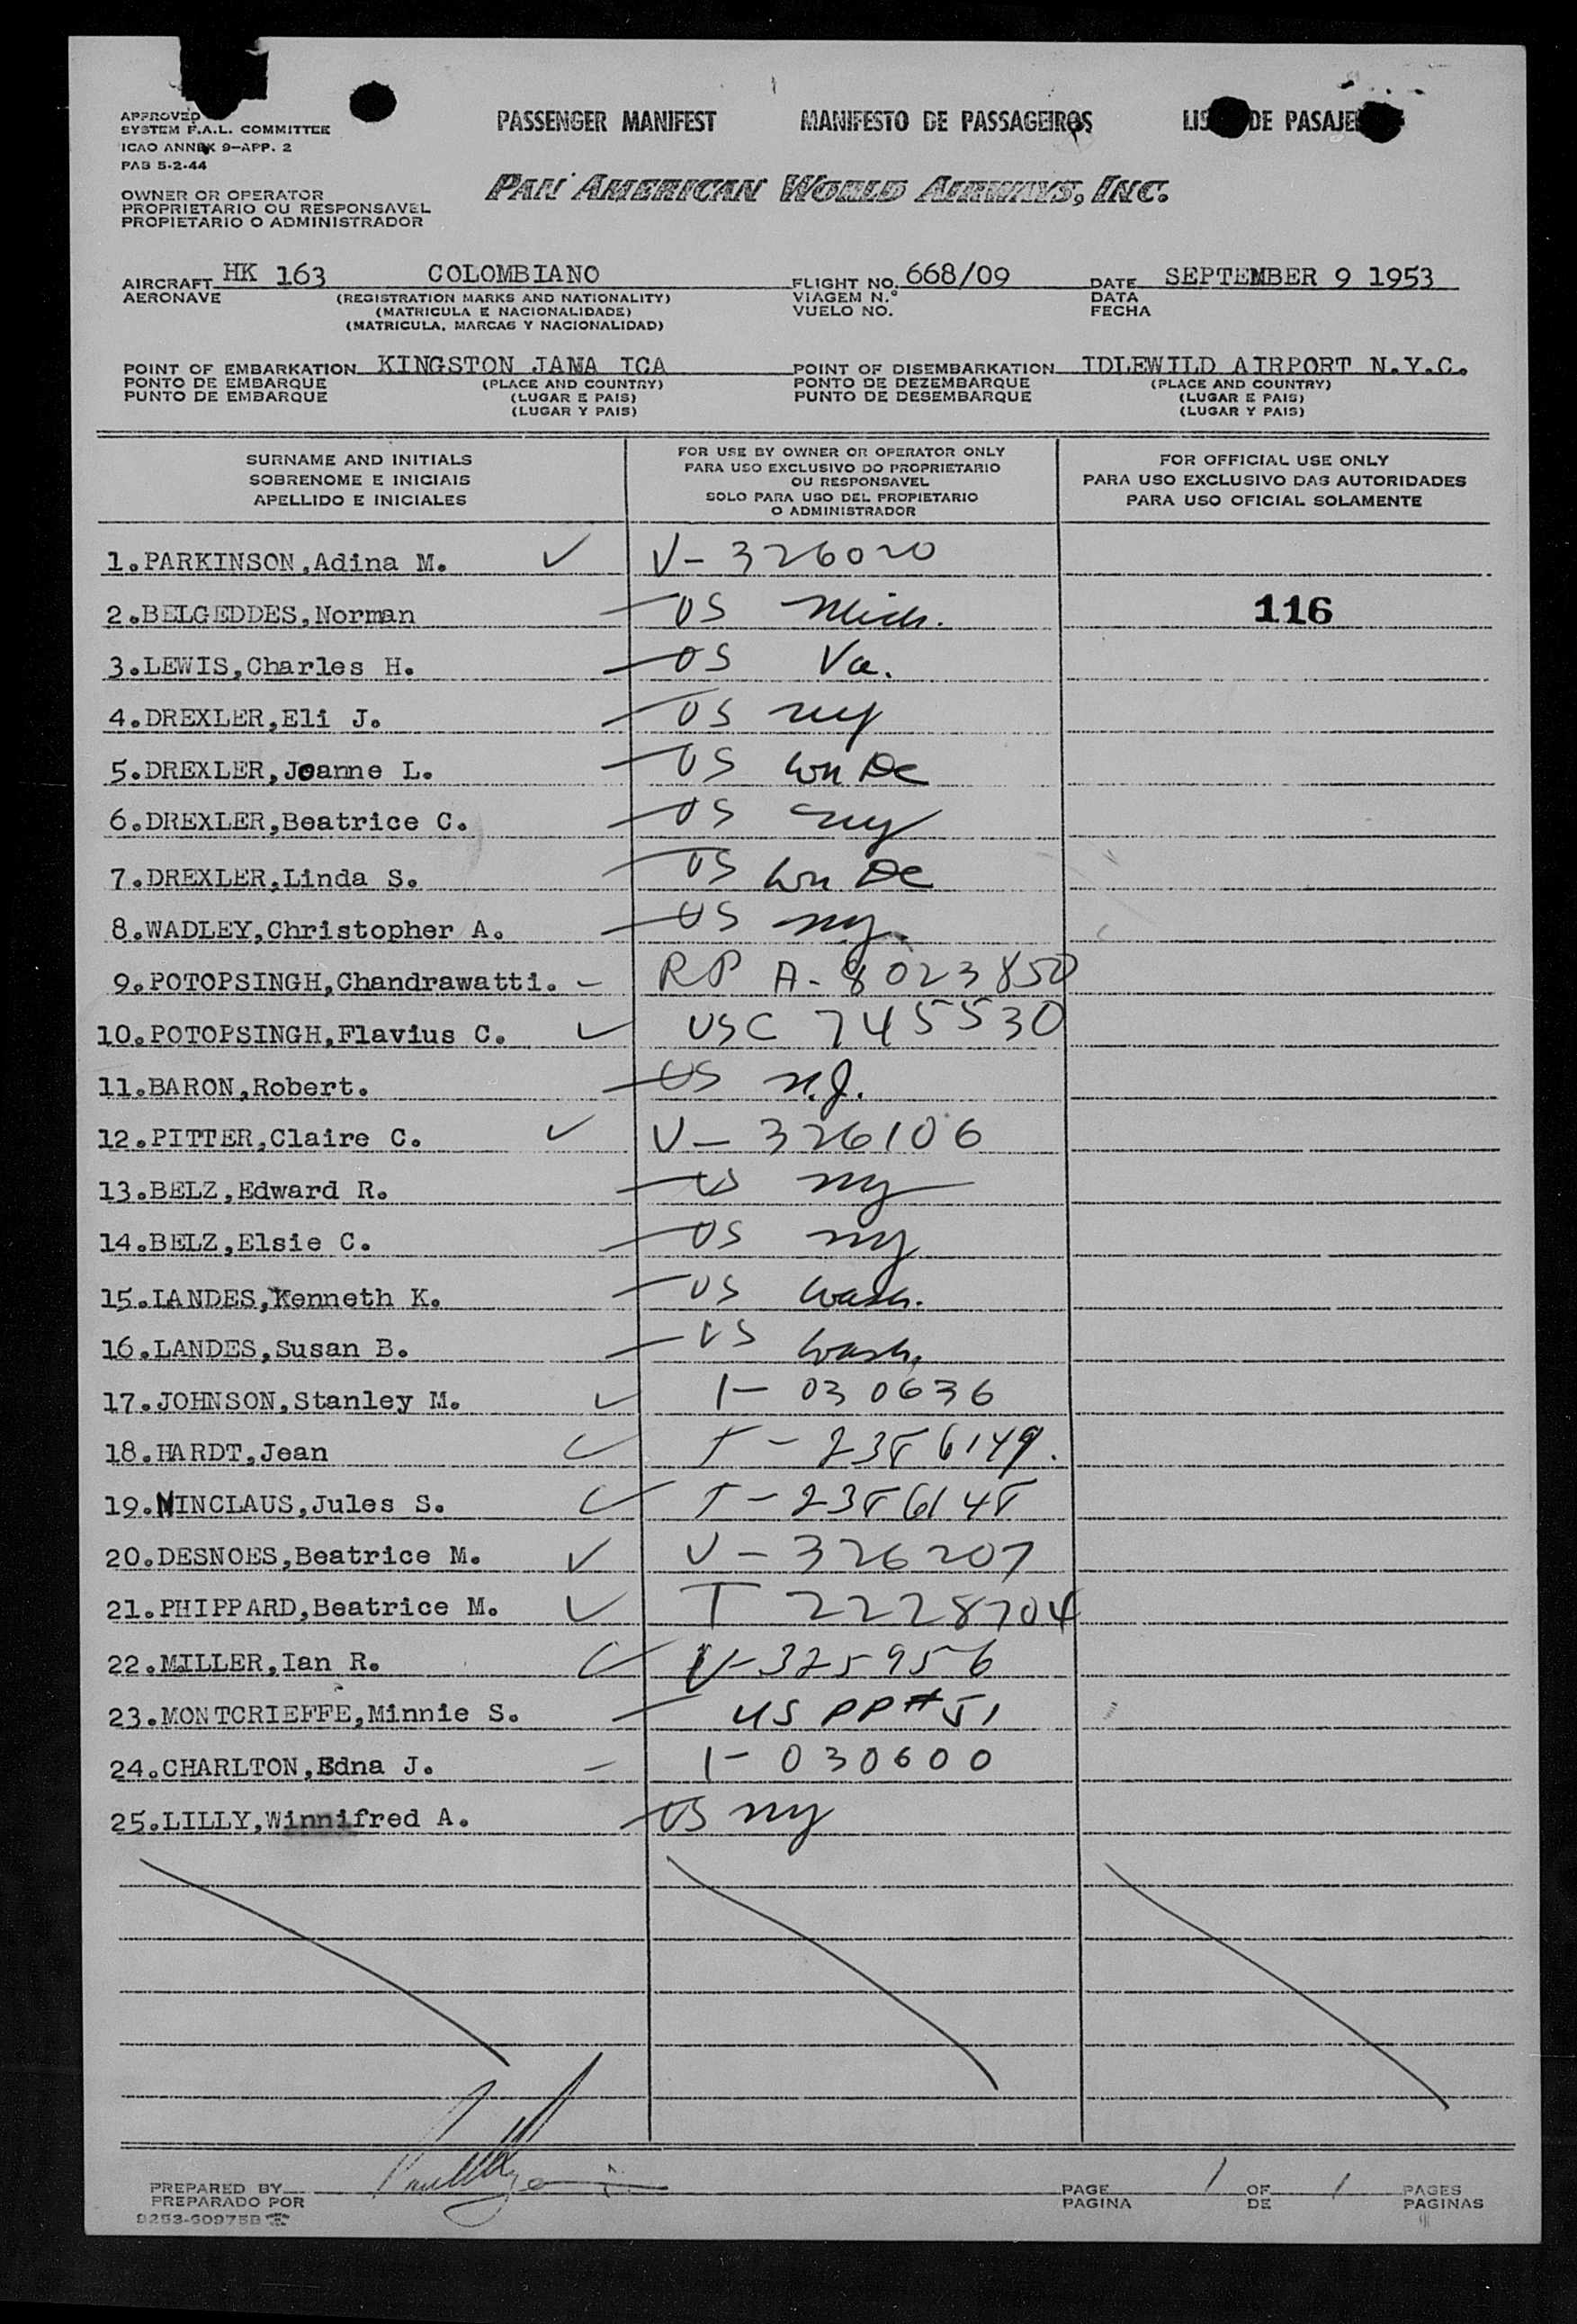 PASSENGER MANIFEST MANIFESTO DE PASSAGEIROS DE
APPROVED
SYSTEM F.A.L. COMMITTEE
ICAO ANNEX 9-APP. 2
PAB 5-2-44
PAN AMERICAN WORLD AIRWAYS, INC.
OWNER OR OPERATOR
PROPRIETARIO OU RESPONSAVEL
PROPIETARIO O ADMINISTRADOR
AIRCRAFT HK 163 COLOMBIANO FLIGHT NO. 668/09 DATE SEPTEMBER 9 1953
AERONAVE (REGISTRATION MARKS AND NATIONALITY) VIAGEM N.º DATA
(MATRICULA E NACIONALIDADE) VUELO NO. FECHA
(MATRICULA, MARCAS Y NACIONALIDAD)
POINT OF EMBARKATION KINGSTON JAMA ICA POINT OF DISEMBARKATION IDLEWILD AIRPORT N.Y.C.
PONTO DE EMBARQUE (PLACE AND COUNTRY) PONTO DE DEZEMBARQUE (PLACE AND COUNTRY)
PUNTO DE EMBARQUE (LUGAR E PAIS) PUNTO DE DESEMBARQUE (LUGAR E PAIS)
(LUGAR Y PAIS) (LUGAR Y PAIS)
SURNAME AND INITIALS
SOBRENOME E INICIAIS
APELLIDO E INICIALES
FOR USE BY OWNER OR OPERATOR ONLY
PARA USO EXCLUSIVO DO PROPRIETARIO
OU RESPONSAVEL
SOLO PARA USO DEL PROPIETARIO
O ADMINISTRADOR
FOR OFFICIAL USE ONLY
PARA USO EXCLUSIVO DAS AUTORIDADES
PARA USO OFICIAL SOLAMENTE
1.PARKINSON,Adina M. V- 326020
2.BELGEDDES,Norman US Mich. 116
3.LEWIS,Charles H. US Va.
4.DREXLER,Eli J. US NY
5.DREXLER,Joanne L. US Wn DC
6.DREXLER,Beatrice C. US NY
7.DREXLER,Linda S. US Wn DC
8.WADLEY,Christopher A. US NY.
9.POTOPSINGH,Chandrawatti. RP A-8023850
10.POTOPSINGH,Flavius C. USC 745530
11.BARON,Robert. US N.J.
12.PITTER,Claire C. V- 326106
13.BELZ,Edward R. US NY
14.BELZ,Elsie C. US NY
15.LANDES,Kenneth K. US Wash.
16.LANDES,Susan B. US Wash.
17.JOHNSON,Stanley M. 1- 030636
18.HARDT,Jean T-2386149.
19.NINCLAUS,Jules S. T-2386148
20.DESNOES,Beatrice M. V-326207
21.PHIPPARD,Beatrice M. T 2228704
22.MILLER,Ian R. V-325956
23.MONTCRIEFFE,Minnie S. US PP#51
24.CHARLTON,Edna J. 1- 030600
25.LILLY,Winnifred A. US NY
PREPARED BY PAGE 1 OF 1 PAGES
PREPARADO POR PAGINA DE PAGINAS
9253-60975B